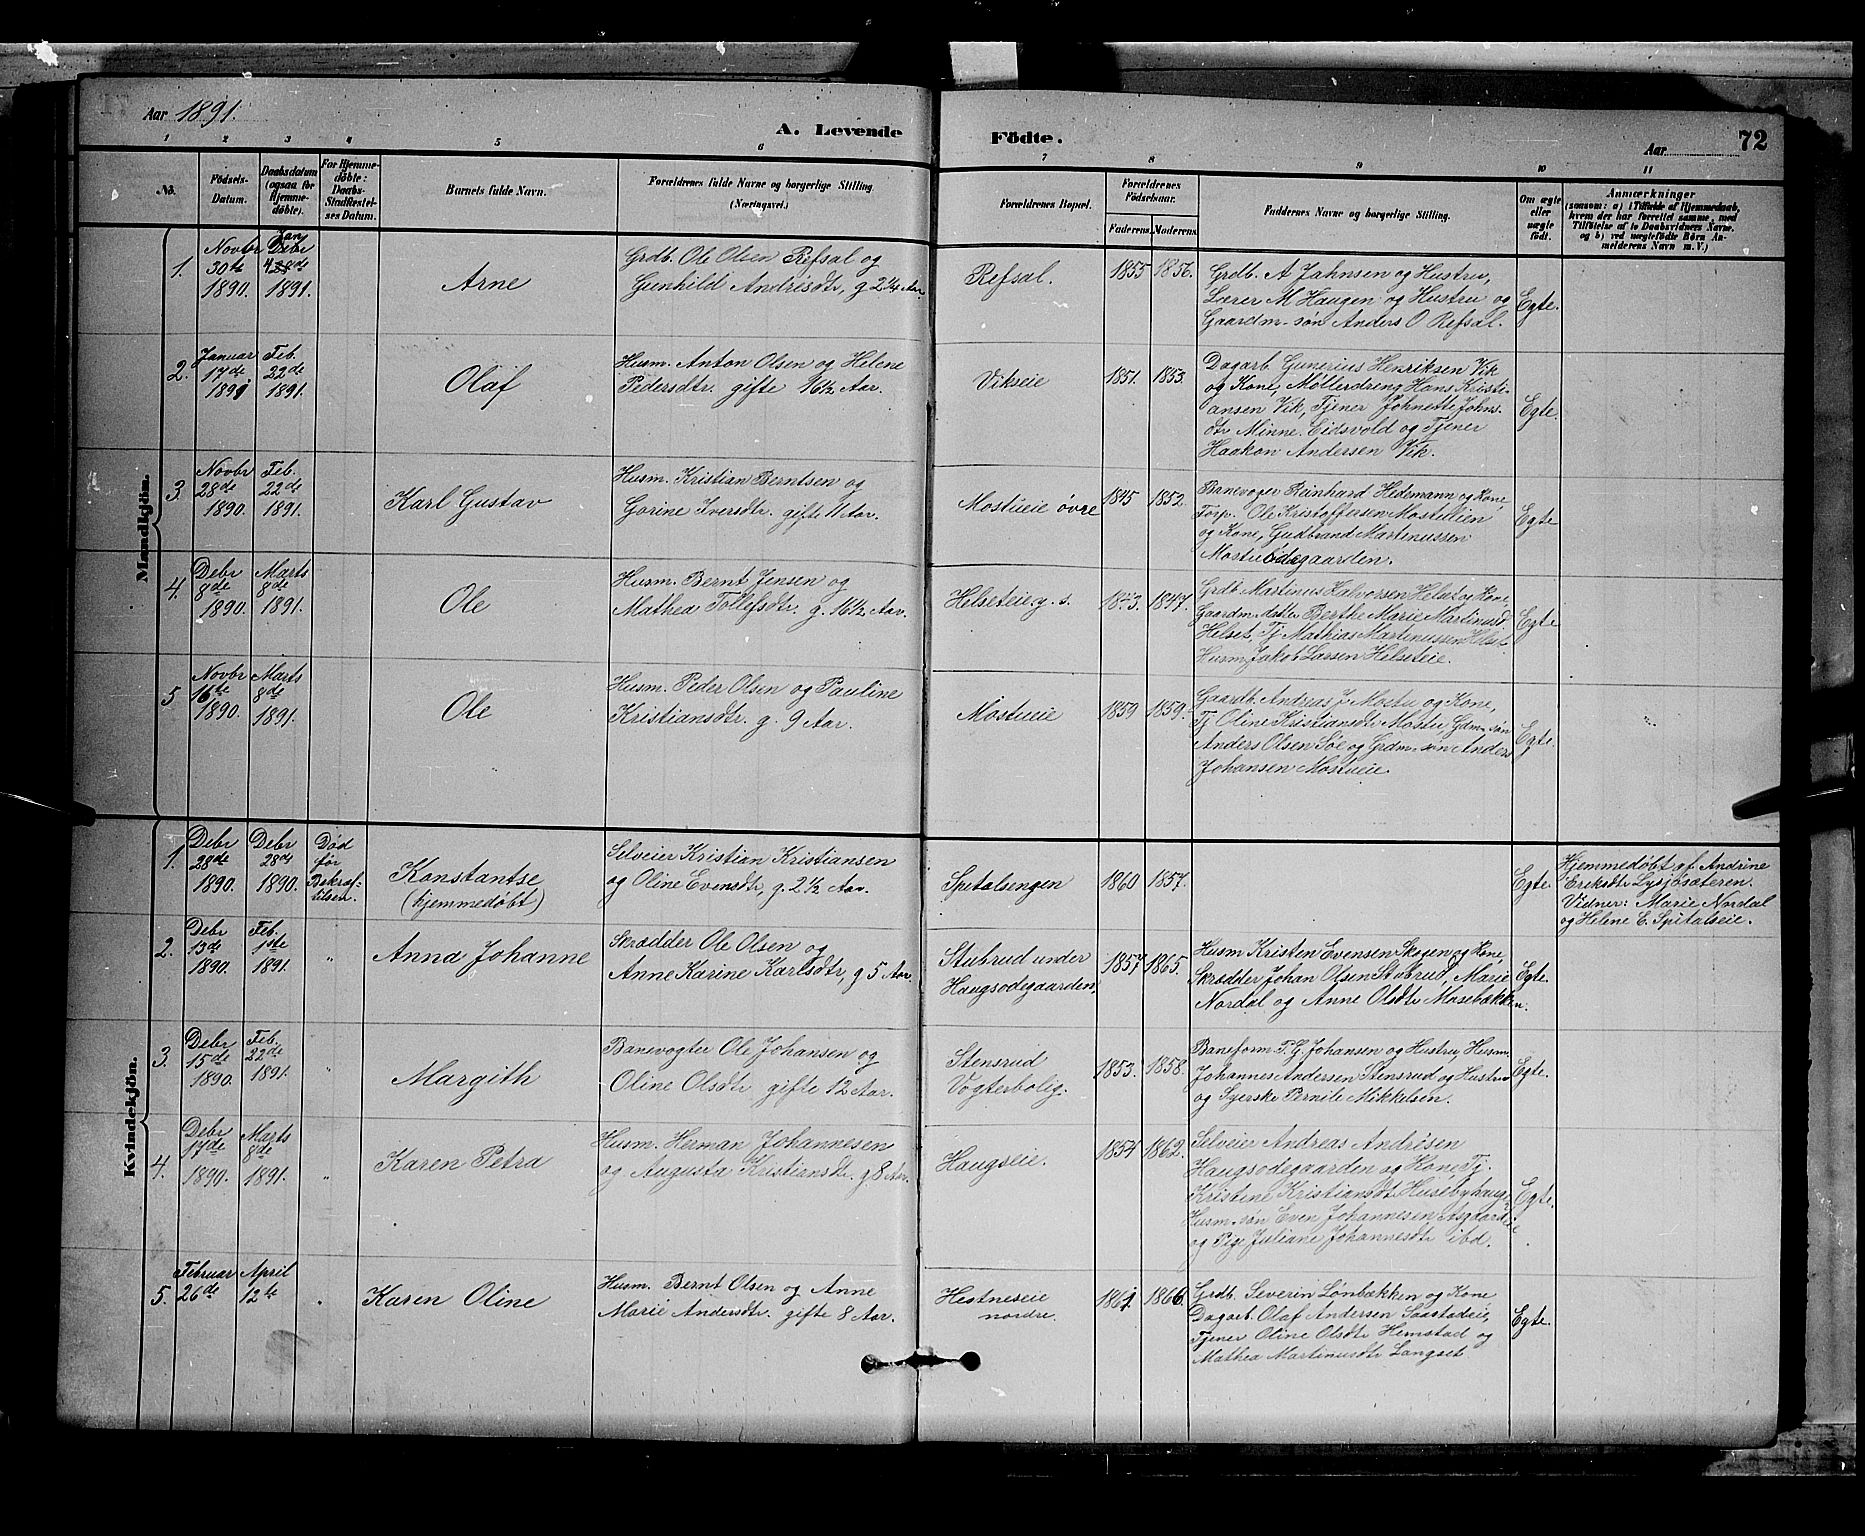 Aar 1891.
A. Levende
Födte.
Aar
72
1 2 3 4 5 6 7 8 9 10 11
No.
Födsels-
Datum.
Daabsdatum
(ogsaa for
Hjemme-
döbte).
For Hjemme-
döbte:
Daabs-
Stadfæstel-
ses Datum.
Barnets fulde Navn.
Forældrenes fulde Navne og borgerlige Stilling
(Næringsvei.)
Forældrenes Bopæl.
Forældrenes
Födselsaar.
Faderens. Moderens.
Faddernes Navne og borgerlige Stilling.
Om ægte
eller
uægte
födt.
Anmærkninger
(saasom: a) i Tilfælde af Hjemmedaab,
hvem der har forrettet samme, med
Tilföielse af to Daabsvidners Navne,
og b) ved uægtefödte Börn An-
melderens Navn m. V.)
Mandkjön.
1.
Novbr
30te
1890.
Jan
Debr
4 28de
1891.
Arne
Grdb. Ole Olsen Refsal og
Gunhild Andrisdtr, g 2 1/4 Aar.
Refsal.
1855 1856.
Grdb. A Jahnsen og Hustru,
Lærer M Haugen og Hustru og
Gaardm. søn Anders O Refsal.
Egte.
2.
Januar
17de
1891
Feb.
22de
1891.
Olaf
Husm. Anton Olsen og Helene
Pedersdtr. gifte 16½ Aar.
Vikseie
1851. 1853.
Dagarb. Gunerius Henriksen Vik
og Kone, Møllerdreng Hans Kristi-
ansen Vik, Tjener Johnette Johns-
dtr Minne. Eidsvold og Tjener
Haakon Andersen Vik.
Egte.
3.
Novbr
28de
1890.
Feb.
22de
1891.
Karl Gustav
Husm. Kristian Berntsen og
Gorine Iversdtr. gifte 11 Aar.
Mostueie øvre
1845 1852.
Banevogter Reinhard Hedemann og Kone,
Torp. Ole Kristoffersen Mostulien
og Kone, Gudbrand Martinussen
Mostu Ödegaarden.
Egte
4.
Debr
8de
1890.
Marts
8de
1891.
Ole
Husm. Bernt Jensen og
Mathea Tollefsdtr. g. 16½ Aar.
Helseteie g. s.
1843. 1847.
Grdb Martinus Halvorsen Helset og Kone,
Gaardm. datter Berthe Marie Martinusd.
Helset, Tj Mathias Martinussen Helset
Husm. Jakob Larsen Helseteie.
Egte
5
Novbr
16te
1890.
Marts
8de
1891.
Ole
Husm. Peder Olsen og Pauline
Kristiansdtr. g. 9 Aar.
Mostueie
1859 1859.
Gaardb. Andreas J Mostu og Kone,
Tj Oline Kristiansdtr Mostu Gdm. søn
Anders Olsen Søe og Grdm. søn Anders
Johansen Mostueie
Egte.
Kvindekjön.
1.
Debr
28de
1890.
Debr
28de
1890.
Död
før
Bekræf-
telsen.
Konstantse
(hjemmedøbt)
Selveier Kristian Kristiansen
og Oline Evensdtr, g. 2½ Aar.
Spitalsengen
1860 1857.
Egte.
Hjemmedøbt af Andrine
Eriksdtr Lysjøsæteren.
Vidner: Marie Nordal
og Helene E. Spitalseie.
2.
Debr
13de
1890.
Feb.
1ste
1891.
"
Anna Johanne
Skrædder Ole Olsen og
Anne Karine Karlsdtr, g 5 Aar.
Stubrud under
Haugsodegaarden.
1857 1865.
Husm Kristen Evensen Skogen og Kone,
Skrædder Johan Olsen Stubrud, Marie
Nordal og Anne Olsdtr Mosebækken.
Egte.
3.
Debr
15de
1890.
Feb.
22de
1891.
"
Margith
Banevogter Ole Johansen og
Oline Olsdtr gifte 12 Aar.
Stensrud
Vogterbolig.
1853. 1858.
Baneform. T. G. Johansen og Hustru, Husm.
Johannes Andersen Stensrud og Hustru
og Syerske Pernile Mikkelsen.
Egte.
4.
Debr
17de
1890.
Marts
8de
1891.
"
Karen Petra
Husm. Herman Johannesen
og Augusta Kristiansdtr. g 8 Aar.
Haugseie.
1854 1862.
Selveier Andreas Andrösen
Haugsodegaarden og Kone, Tj.
Kristine Kristiansdt Husebyhauge
Husm. søn Even Johannesen Asgaard
og Pige Juliane Johannesdtr ibd.
Egte.
5.
Februar
26de
April
12te
"
Karen Oline
Husm. Bernt Olsen og Anne
Marie Andersdtr. gifte 8 Aar.
Hestneseie
nordre.
1861 1866.
Grdb. Severin Lønbækken og Kone
Dagarb. Olaf Andersen Saastadeie,
Tjener Oline Olsdtr Hemstad og
Mathea Martinusdtr Langset
Egte.